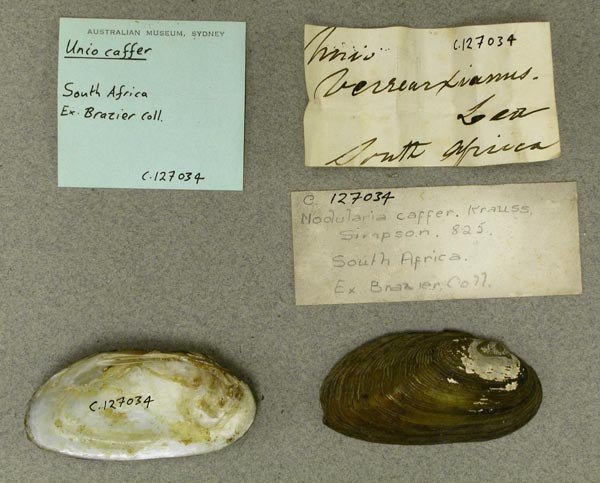 AUSTRALIAN MUSEUM, SYDNEY
Unio caffer
South Africa
Ex. Brazier Coll.
C.127034
C.127034
Unio
Verreauxianus.
Lea
South Africa
C. 127034
Nodularia caffer. Krauss.
Simpson. 825.
South Africa.
Ex. Brazier, Coll.
C.127034